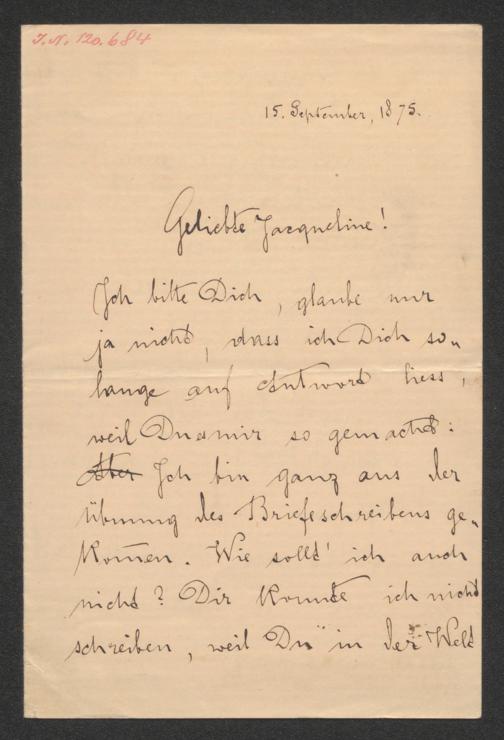 J.N. 120.684
15. September, 1875.
Geliebte Jacqueline!
Ich bitte Dich, glaube nur
ja nicht, dass ich Dich so„
lange auf Antwort liess,
weil Du's mir so gemacht:
Aber Ich bin ganz aus der
Übung des Briefeschreibens ge„
kom̄en. Wie sollt' ich auch
nicht? Dir konnte ich nicht
schreiben, weil Du in der Welt